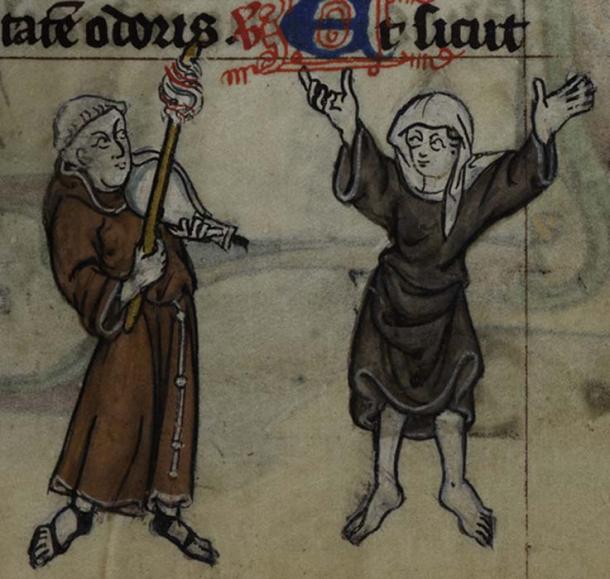 tatē odoris . V̷ Et sicut